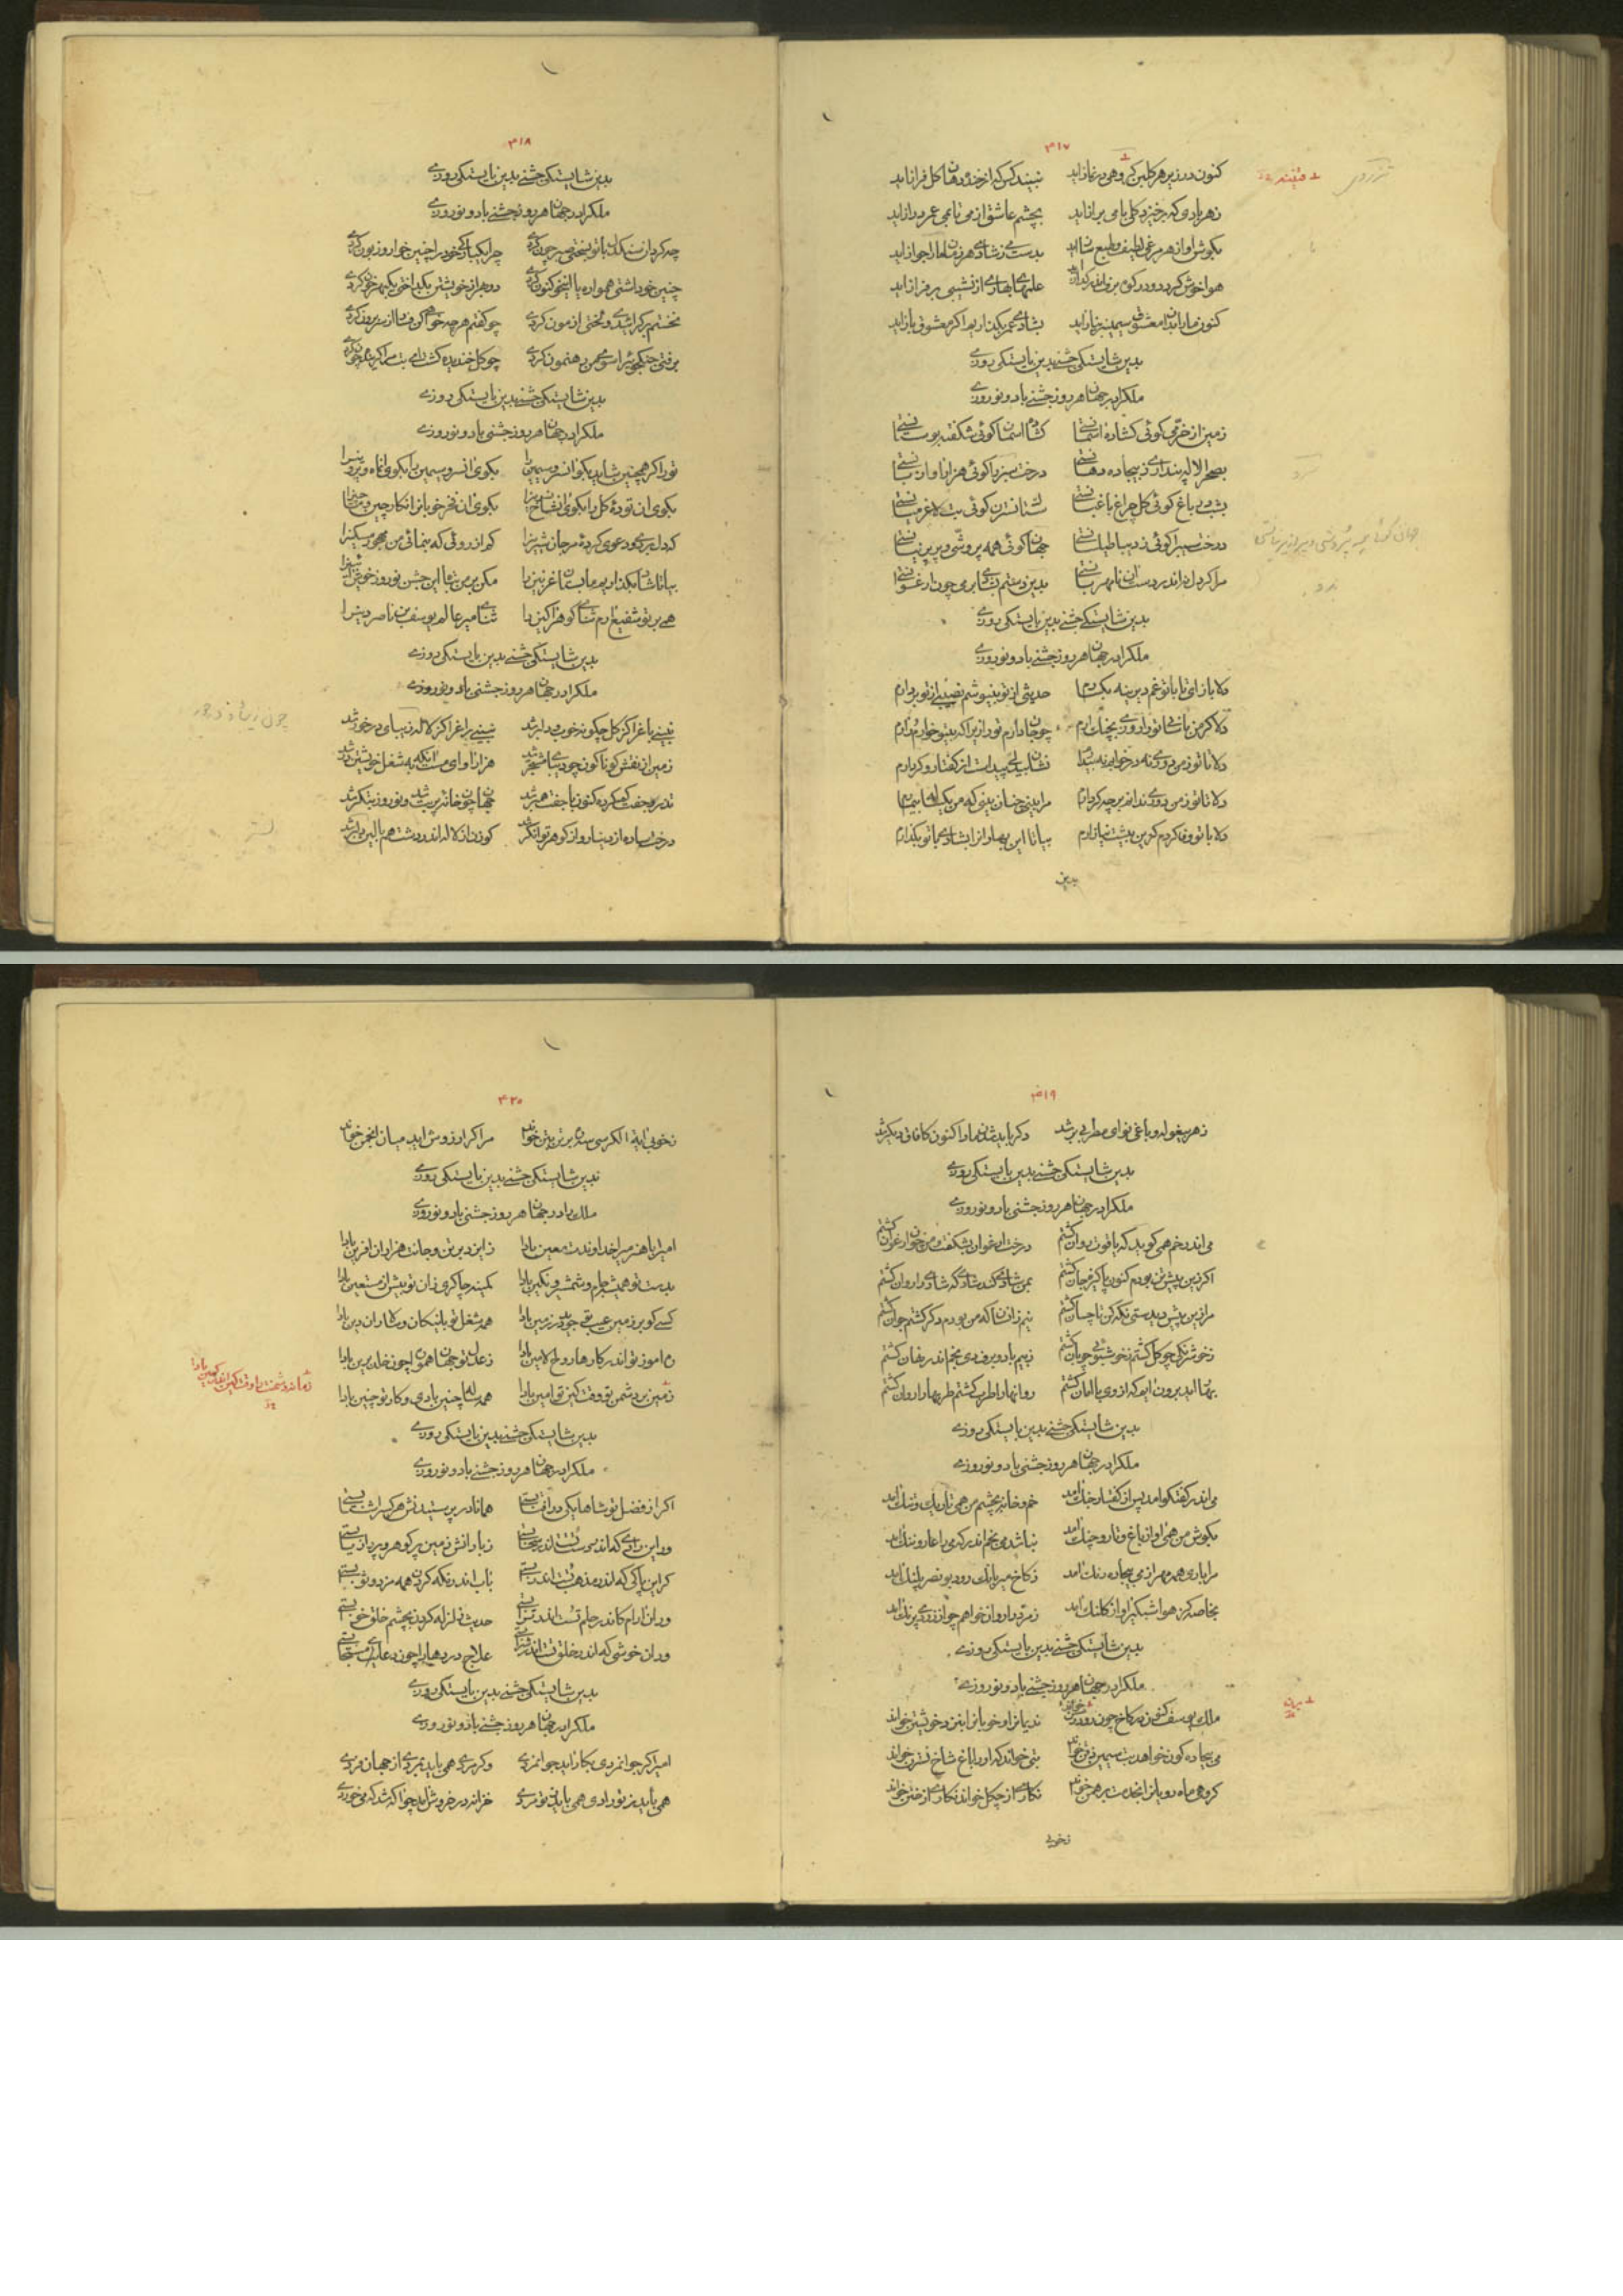 ۳۱۷
کنون در زیر هر گلبن گروهی در نماز اید نبیند کس که از خنده دهان گل فراز اید
زهر بادی که برخیزد گلی با می براز اید بچشم عاشق از می تا بمی عمر دراز اید
بگوش اواز هر مرغی لطیف و طبع ساز اید بدست می ز شادی هر زمان ما را جواز اید
هوا خوش گردد و در کوه برف اندر گداز اید علمهای بهاری از نشیبی بر فراز اید
کنون ما را بدان معشوق سیمین بر نیاز اید بشادی عمر بگذاریم اگر معشوق باز اید
بدین شایستگی جشنی بدین بایستگی روزی
ملک را در جهان هر روز جشنی باد و نوروزی
زمین از خرمی گوئی گشاده اسمانستی گشاده اسمان گوئی شکفته بوستانستی
بصحرا لاله پنداری ز بیجاده دهانستی درخت سبز را گوئی هزار اوا زبانستی
بشب در باغ گوئی گل چراغ باغبانستی ستاک نسترن گوئی بت لاغر میانستی
درخت سیب را گوئی ز دیبا طیلسانستی جهان گوئی همه پر وشی و پر پرنیانستی
مرا گر دل نه اندر دست ان نامهربانستی بدین دستم شرابی چون ارغوانستی
بدین شایستگی جشنی بدین بایستگی روزی
ملک را در جهان هر روز جشنی باد و نوروزی
دلا باز ای تا با تو غم دیرینه بگسارم حدیثی از تو بنیوشم نصیبی از تو بردارم
دلا گر من باسانی ترا روزی بچنگ ارم چو جان دارم ترا زیرا که بیتو خوارم و زارم
دلا تا تو ز من دوری نه در خوابم نه بیدارم نشان بیدلی پیداست از گفتار و کردارم
دلا تا تو ز من دوری ندانم بر چه کردارم مرا بینی چنان بینی که من یکساله بیمارم
دلا با تو وفا کردم کزین بیشت نیازارم بیا تا این بهاران را بشادی با تو بگذارم
بدین
۳۱۸
بدین شایستگی جشنی بدین بایستگی روزی
ملک را در جهان هر روز جشنی باد و نوروزی
چه کرد ان سنگدل با تو بسختی صبر چون کردی چرا یکبارگی خود را چنین خوار و زبون کردی
چنین خو داشتی همواره یا این خو کنون کردی دو بهر از خویشتن بگداختی یکبهره خون کردی
نخستم برگراشیدی و لختی ازمون کردی چو گفتم هر چه خواهی کن فسار از سر برون کردی
برفتی جنگجوئی را سوی من رهنمون کردی چو گل خندیده گشت ای بت مرا گرینده چون کردی
بدین شایستگی جشنی بدین بایستگی روزی
ملک را در جهان هر روز جشنی باد و نوروزی
ترا گر همچنین شاید بگو ان سرو سیمین را بگوی ان سرو سیمین را بگوی ان ماه و پروین را
بگوی ان توده گل را بگوی ان شاخ نسرین را بگوی ان فخر خوبان را نگار چین و ماچین را
که دل بردی و دعوی کرده مر جان شیرین را کم از روئی که بنمائی من مهجور مسکین را
بیا تا شاد بگذاریم ما بستان غزنین را مکن بر من تباه این جشن نوروز خوش ائین را
همی بر تو شفیع ارم ثنای گوهر اگین را ثنای میر عالم یوسف بن ناصر دین را
بدین شایستگی جشنی بدین بایستگی روزی
ملک را در جهان هر روز جشنی باد و نوروزی
نبینی باغ را کز گل چگونه خوب و دلبر شد نبینی راغ را کز لاله زیبای و درخور شد
زمین از نقش گوناگون چو دیبای ششتر شد هزار اوای مست اینک بشغل خویشتن در شد
تذرو جفت گم کرده کنون با جفت همبر شد جهان چون خانه پر بت شد و نوروز بتگر شد
درخت ساده از دینار و از گوهر توانگر شد گوزن از لاله اندر دشت هم بالین و بستر شد
۳۱۹
زهر بیغوله و باغی نوای مطربی بر شد دگر باید شدن ما را کنون کافاق دیگر شد
بدین شایستگی جشنی بدین بایستگی روزی
ملک را در جهان هر روز جشنی باد و نوروزی
می اندر خم همی گوید که یاقوت روان گشتم درخت ارغوان بشکفت و من چون ارغوان گشتم
اگر زین پیش تن بودم کنون پاکیزه جان گشتم بمن شادی کند شادی که شادی را روان گشتم
مرا زین پیش دیدستی نگه کن تا چسان گشتم نیم زانسان که من بودم دگر گشتم جوان گشتم
ز خوشرنگی چو گل گشتم ز خوشبوئی چو بان گشتم ز بیم باد و برف دی بخم اندر نهان گشتم
بهار امد برون ایم که از وی با امان گشتم روانها را طرب گشتم طربها را روان گشتم
بدین شایستگی جشنی بدین بایستگی روزی
ملک را در جهان هر روز جشنی باد و نوروزی
می اندر گفتگو امد پس از گفتار جنگ امد خم و خانه بچشم من همی تاریک و تنگ امد
بگوش من همی اواز باغ و تار و چنگ امد نباشم من بخم اندر که می را عار و ننگ امد
مرا باری همه مهر از می بیجاده رنگ امد ز کاخ میر بانگ رود بونصر پلنگ امد
بخاصه کز هوا شبگیر اواز کلنگ امد زمرد را روان خواهم چو از روی پرنگ امد
بدین شایستگی جشنی بدین بایستگی روزی
ملک را در جهان هر روز جشنی باد و نوروزی
ملک یوسف کنون در کاخ چون رود زن خواند ندیمان را و خوبان را بنزد خویشتن خواند
می بیجاده گون خواهد بت سیمین ذقن خواند بتی خواند که او را باغ شاخ نسترن خواند
گروهی ماه رویان را بخدمت بر همن خواند نگاری از چگل خواند نگاری از ختن خواند
بخوبی
۳۲۰
بخوبی ایة الکرسی سه ره بر تن بتن خواند مرا گر ارزوش اید میان انجمن خواند
بدین شایستگی جشنی بدین بایستگی روزی
ملک را در جهان هر روز جشنی باد و نوروزی
امیرا با هنر میرا خداوندت معین بادا ز ایزد بر تن و جانت هزاران افرین بادا
بدست تو همیشه جام و شمشیر و نگین بادا کمینه چاکری زان تو بیش از مستعین بادا
کسی کو بر زمین عیب تو جوید در زمین بادا همه شغل تو با نیکان و سالاران دین بادا
ره اموز تو اندر کارها روح الامین بادا ز عدل تو جهان همواره چون خلد برین بادا
زمین بر دشمن تو وقت کین تو امین بادا همه ساله چنین بادی و کار تو چنین بادا
بدین شایستگی جشنی بدین بایستگی روزی
ملک را در جهان هر روز جشنی باد و نوروزی
اگر از فضل تو شاها یکی در افتابستی همانا در پرستیدنش هر کس را شتابستی
ور این رادی که اندر دست تست اندر سحابستی ز بارانش زمین پر گوهر و پر زر نابستی
گر این پاکی که اندر مذهب تست اندر ابستی باب اندر نگه کردن همه مزد و ثوابستی
ور ان ارام کاندر حلم تست اندر ترابستی حدیث زلزله کردن بچشم خلق خوابستی
ور ان خوشی که اندر خلق تست اندر شرابستی علاج دردها را چون دعای مستجابستی
بدین شایستگی جشنی بدین بایستگی روزی
ملک را در جهان هر روز جشنی باد و نوروزی
امیرا گر جوانمردی بکار اید جوانمردی وگر مردی همی باید بمردی از جهان فردی
خزانه در خروش اید چو اگه شد که می خوردی